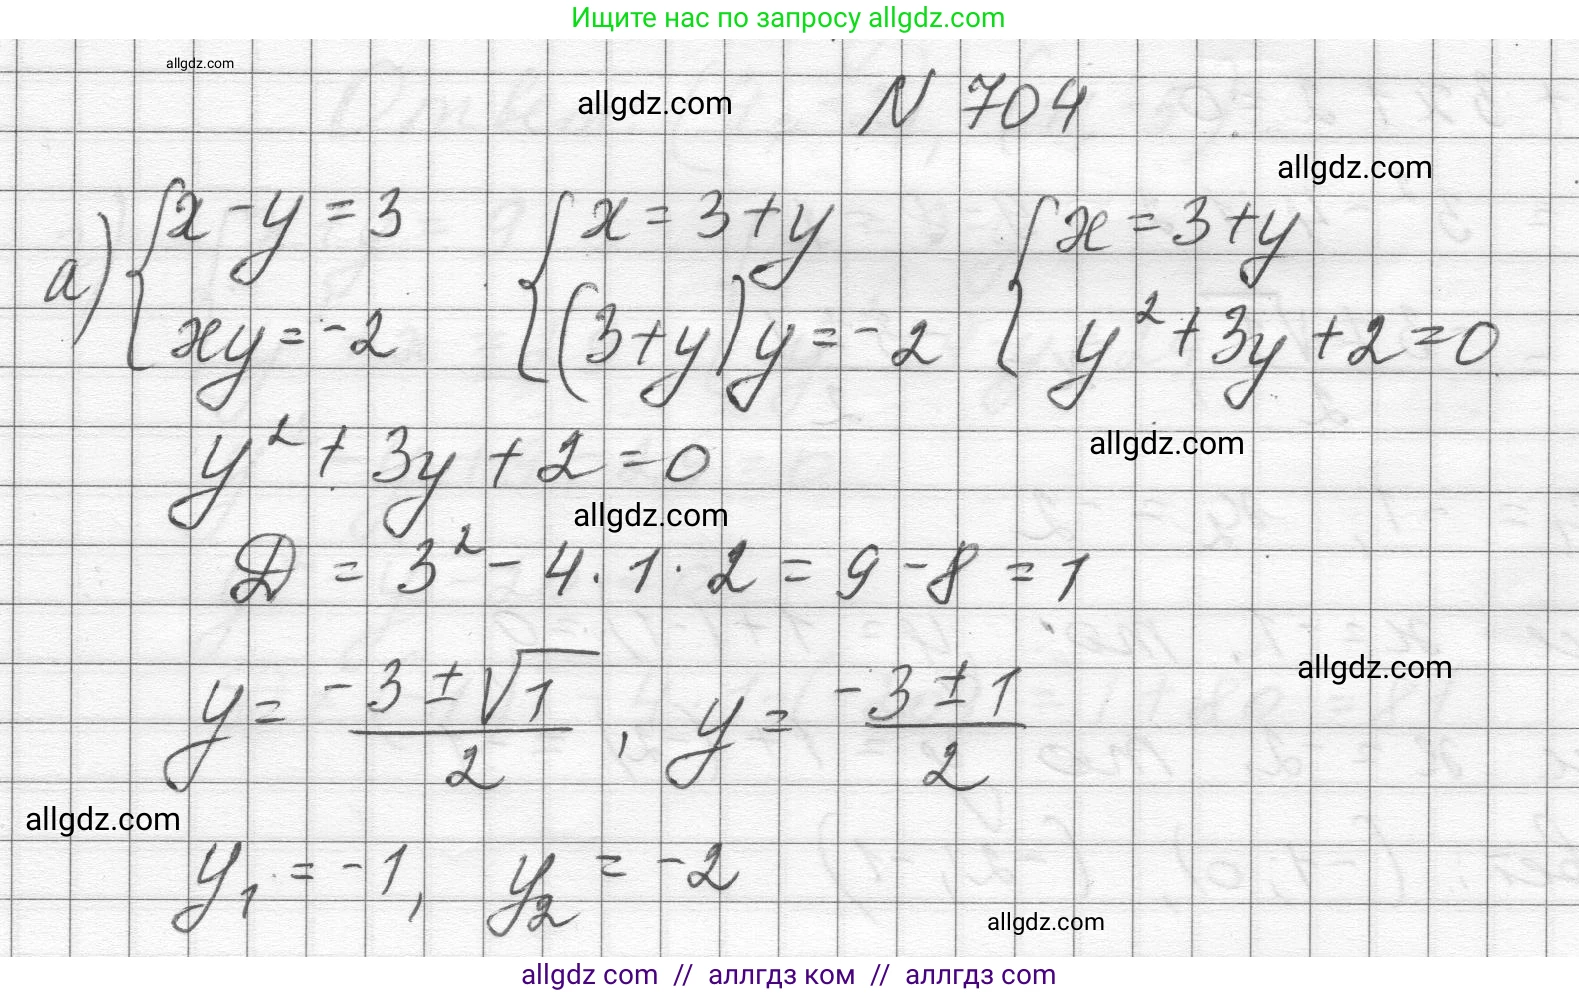 Ищите нас по запросу allgdz.com
allgdz.com
allgdz.com
N 704
allgdz.com
а) { x - y = 3 { x = 3 + y { x = 3 + y
xy = -2 (3 + y)y = -2 y² + 3y + 2 = 0
y² + 3y + 2 = 0
allgdz.com
allgdz.com
D = 3² - 4 · 1 · 2 = 9 - 8 = 1
allgdz.com
y = (-3 ± √1)/2 , y = (-3 ± 1)/2
allgdz.com
y₁ = -1, y₂ = -2
allgdz.com
allgdz com // аллгдз ком // аллгдз com